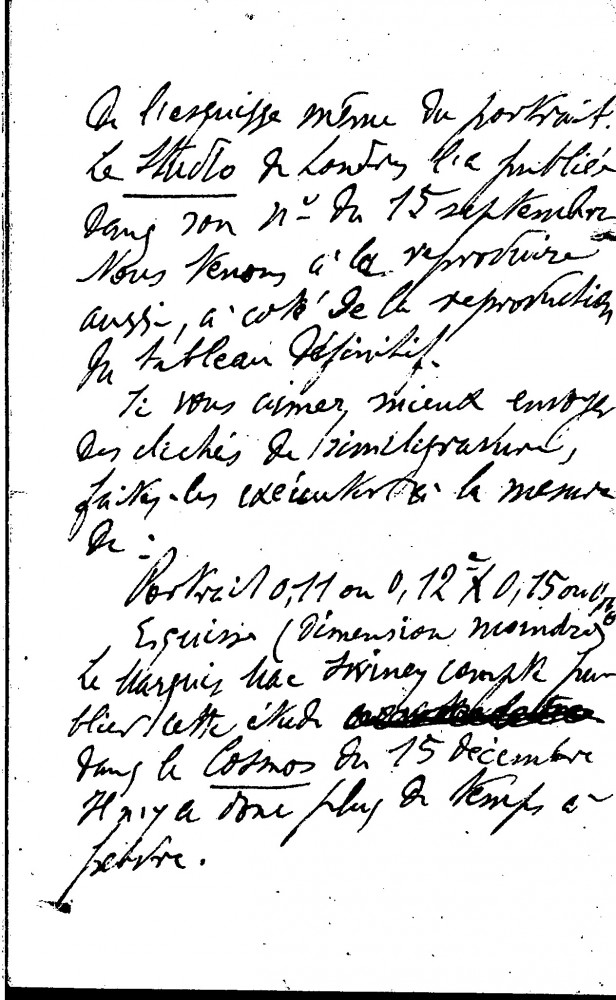 de l'esquisse même du portrait.
Le Studio de Londres l'a publiée
dans son nº du 15 septembre
Nous tenons à la reproduire
aussi, à coté de la reproduction
du tableau définitif.
Si vous aimez mieux envoyer
des clichés de similigravure,
faites-les exécuter à la mesure
de :
Portrait 0,11 ou 0,12 X 0,15 ou 0,16
Esquisse (dimension moindre)
Le Marquis Mac Swiney compte pu-
blier cette étude
dans le Cosmos du 15 décembre
Il n'y a donc plus de temps à
perdre.